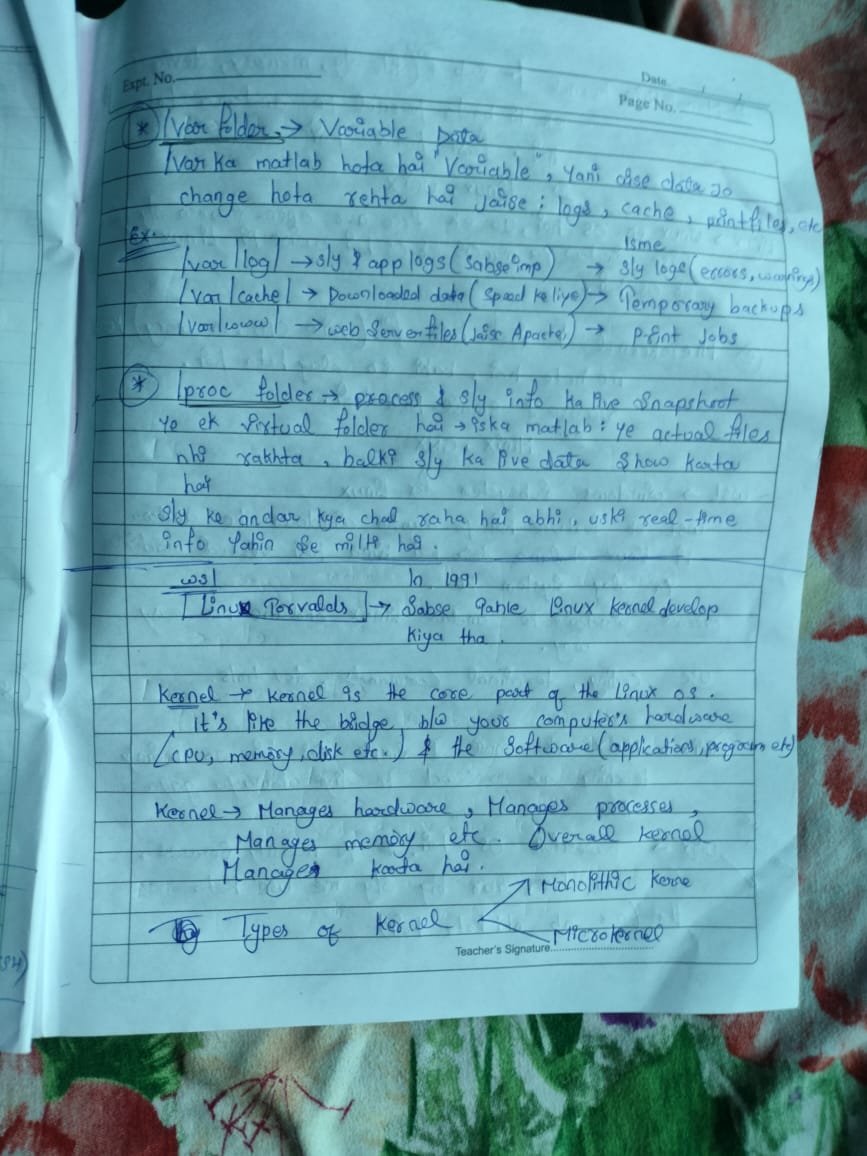 Expt. No.
Date
Page No.
* /var folder → Variable Data
/var ka matlab hota hai "Variable", yani aise data jo
change hota rehta hai jaise: logs, cache, print files, etc
Ex:-
Isme
/var/log/ → s/y & app logs (sabse imp) → s/y logs (errors, warnings)
/var/cache/ → Downloaded data (speed ke liye) → Temporary backups
/var/www/ → web server files (jaise Apache) → Print Jobs
* /proc folder → process & s/y info ka live snapshoot
ye ek virtual folder hai → iska matlab: ye actual files
nhi rakhta, balki s/y ka live data show karta
hai
s/y ke andar kya chal raha hai abhi, uski real-time
info yahin se milti hai.
In 1991
Linux Torvalds → Sabse pahle linux kernel develop
kiya tha.
Kernel → Kernel is the core part of the linux os.
It's like the bridge b/w your computer's hardware
(CPU, memory, disk etc.) & the software (applications, program etc)
Kernel → Manages hardware, Manages processes,
Manages memory etc. Overall kernel
Manages karta hai.
Types of Kernel
Monolithic Kerne
Microkernel
Teacher's Signature